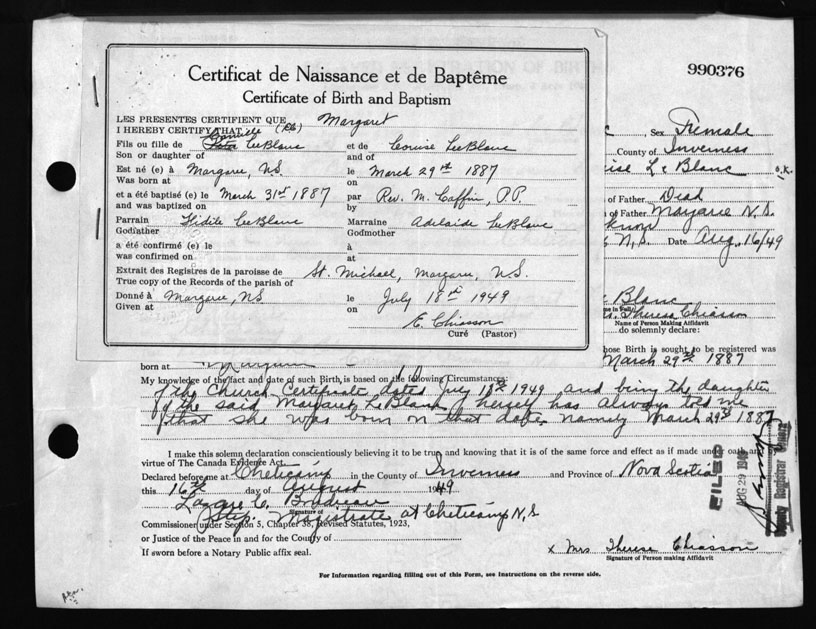 990376
Certificat de Naissance et de Baptême
Certificate of Birth and Baptism
LES PRESENTES CERTIFIENT QUE
I HEREBY CERTIFY THAT Margaret
Fils ou fille de Camille LeBlanc et de Louise LeBlanc
Son or daughter of and of
Est né (e) à Margaree, N.S. le March 29th 1887
Was born at on
et a été baptisé (e) le March 31st 1887 par Rev. M. Laffin, P.P.
and was baptized on by
Parrain LeBlanc Marraine Adelaide LeBlanc
Godfather Godmother
a été confirmé (e) le à
was confirmed on at
Extrait des Registres de la paroisse de
True copy of the Records of the parish of St. Michael, Margaree, N.S.
Donné à Margaree, NS le July 18th 1949
Given at on
E. Chiasson
Curé (Pastor)
Sex Female
County of Inverness
Le Blanc o.k.
of Father Dead
of Father Margaree N.S.
N.S. Date Aug. 16/49
Blanc
Theresa Chiasson
Name of Person Making Affidavit
do solemnly declare:
hose Birth is sought to be registered was
born at Margaree March 29th 1887
My knowledge of the fact and date of such Birth is based on the following circumstances:
of the Church Certificate dated July 18th 1949 and being the daughter
of the said Margaret LeBlanc herself has always told me
that she was born on that date, namely March 29th 1887
I make this solemn declaration conscientiously believing it to be true, and knowing that it is of the same force and effect as if made under oath and
virtue of The Canada Evidence Act.
Declared before me at Cheticamp in the County of Inverness and Province of Nova Scotia
this 16th day of August 1949
Signature of
Magistrate at Cheticamp N,S
Commissioner under Section 5, Chapter 38, Revised Statutes, 1923,
or Justice of the Peace in and for the County of
If sworn before a Notary Public affix seal.
x Mrs Therese Chiasson
Signature of Person making Affidavit
For Information regarding filling out of this Form, see Instructions on the reverse side.
FILED
AUG 29 1949
Deputy Registrar General